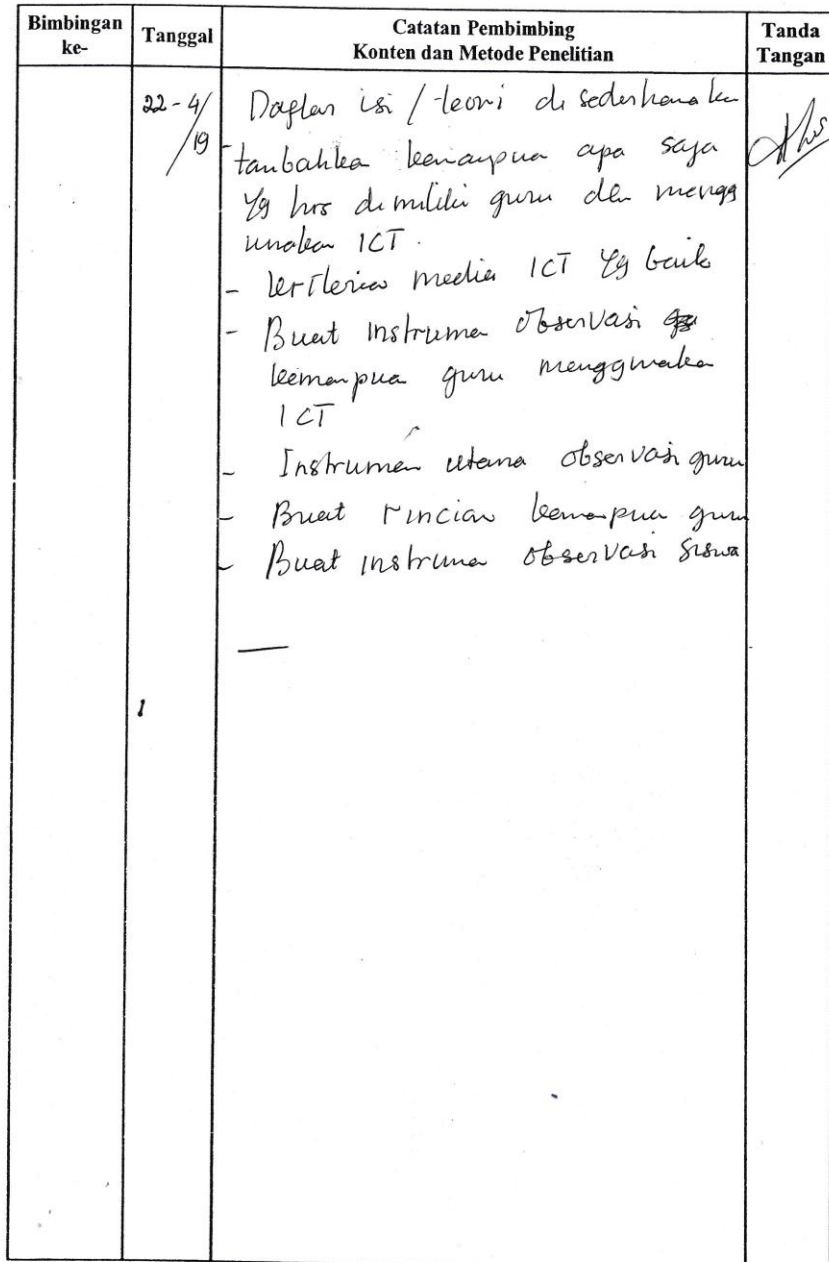 Bimbingan ke-
Tanggal
Catatan Pembimbing
Konten dan Metode Penelitian
Tanda Tangan
22 - 4/19
Daftar isi / teori di sederhanakan
- tambahkan kemampuan apa saja
yg hrs dimiliki guru dlm mengg
unakan ICT.
- kriteria media ICT yg baik
- Buat instrumen observasi
kemampuan guru menggunakan
ICT
- Instrumen utama observasi guru
- Buat rincian kemampuan guru
- Buat instrumen observasi siswa